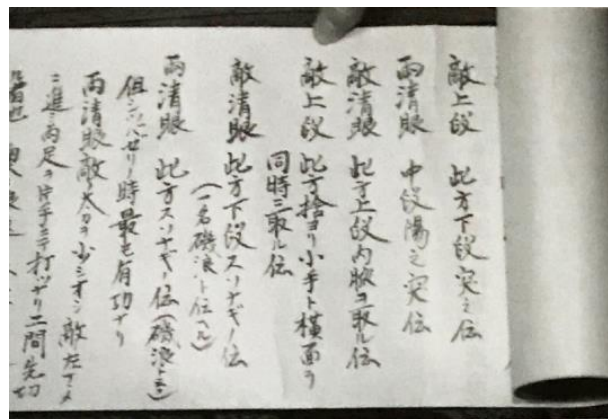 敵上段 此方下段突之伝
両清眼 中段陽之突伝
敵清眼 此方上段内腕ヲ取ル伝
敵上段 此方捨ヨリ小手ト横面ヲ
同時ニ取ル伝
敵清眼 此方下段スソナギノ伝
(一名磯浪ト伝ヘル)
両清眼 此方スソナギノ伝(磯浪トモ)
但シツバゼリノ時最モ有功ナリ
両清眼敵ノ太刀ヲ少シオシ敵左ナメ
ニ進ミ両足ヲ片手ニテ打ツナリ二間先切